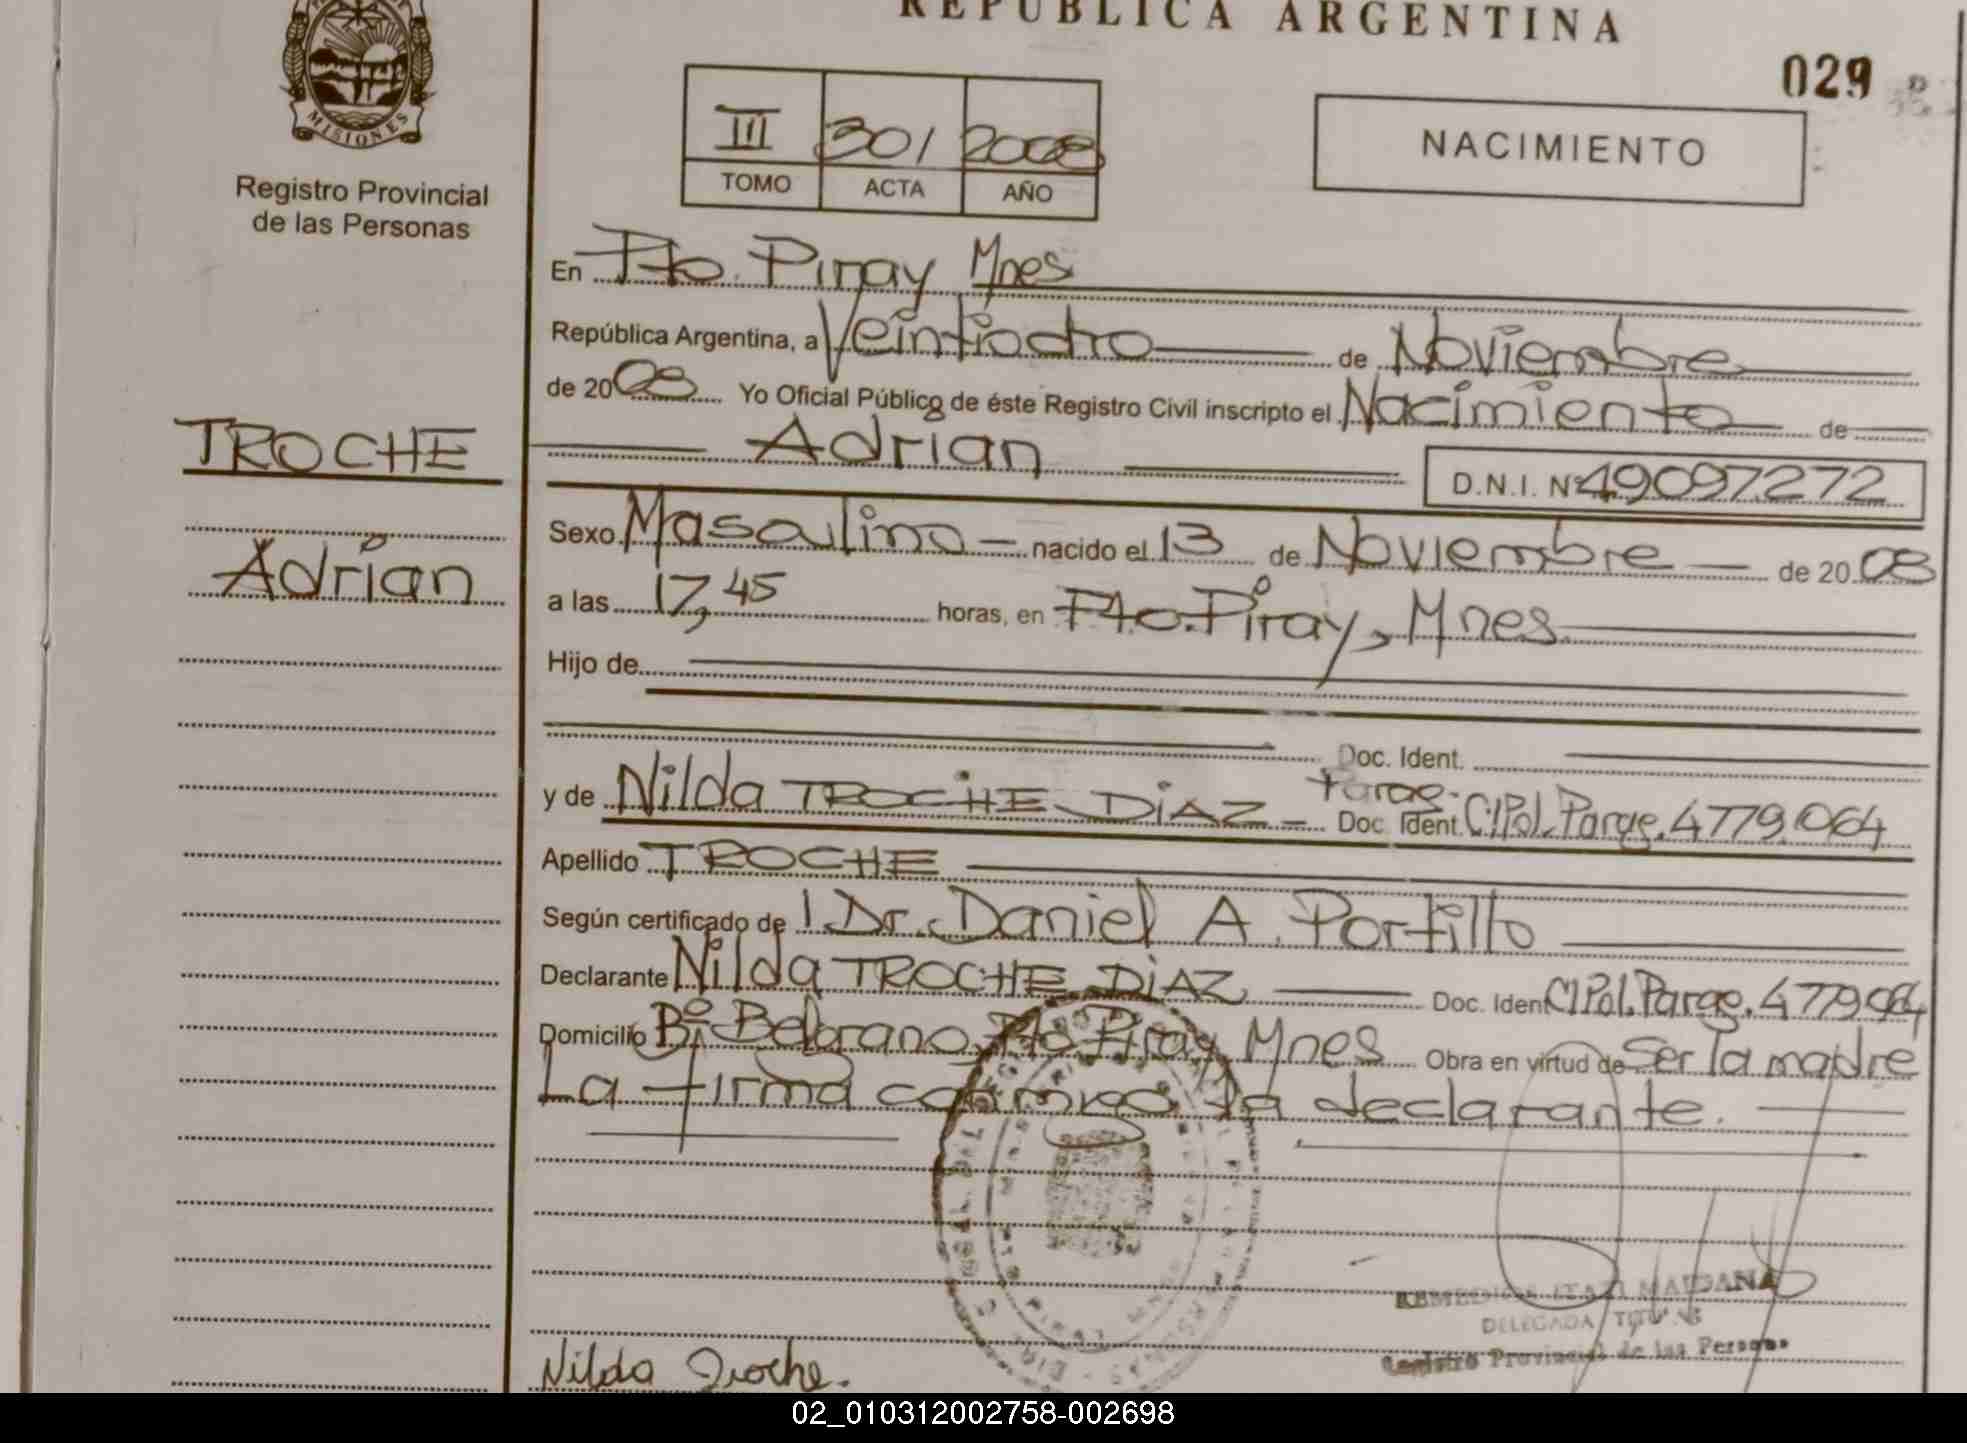 REPUBLICA ARGENTINA
029
MISIONES
Registro Provincial
de las Personas
III 301 2008
TOMO ACTA AÑO
NACIMIENTO
En Pto. Piray Mnes
República Argentina, a Veintiocho de Noviembre
de 2008 Yo Oficial Público de éste Registro Civil inscripto el Nacimiento de
TROCHE
Adrian D.N.I. Nº 49097272
Adrian
Sexo Masculino - nacido el 13 de Noviembre de 2008
a las 17,45 horas, en Pto. Piray, Mnes
Hijo de
Doc. Ident.
y de Nilda TROCHE DIAZ - Doc. Ident. C.I.Pol. Parag. 4779.064
Parag.
Apellido TROCHE
Según certificado de l Dr. Daniel A. Portillo
Declarante Nilda TROCHE DIAZ Doc. Ident C.I.Pol. Parag. 4779064
Domicilio Bº Belgrano, Pto Piray Mnes Obra en virtud de Ser la madre
La firma conmigo la declarante.
REMEDIOS ITATI MAIDANA
DELEGADA TITULAR
Registro Provincial de las Personas
Nilda Troche.
02_010312002758-002698